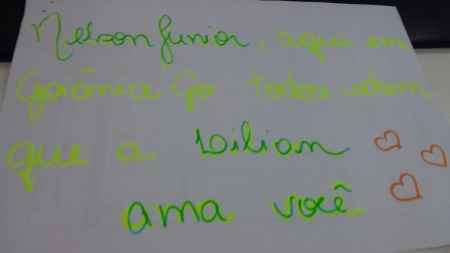 Nelson Junior, aqui em
Goiânia Go todos sabem
que a Lilian
ama você